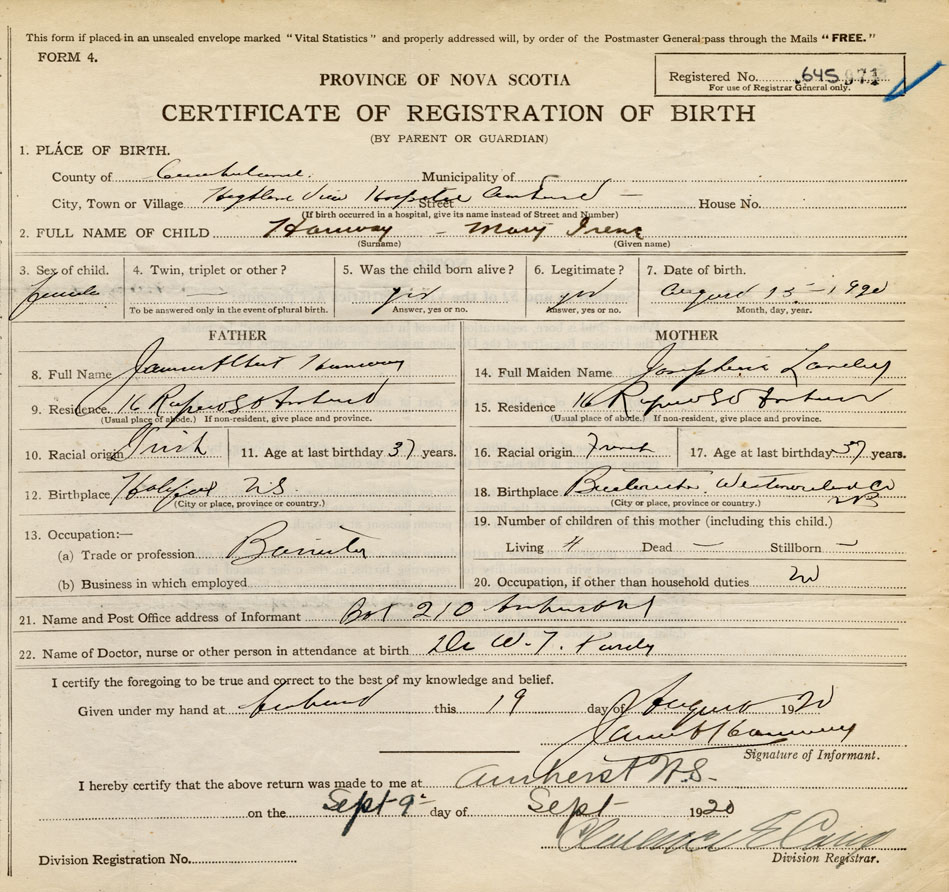 This form if placed in an unsealed envelope marked "Vital Statistics" and properly addressed will, by order of the Postmaster General pass through the Mails "FREE."
FORM 4.
Registered No. 645
For use of Registrar General only.
PROVINCE OF NOVA SCOTIA
CERTIFICATE OF REGISTRATION OF BIRTH
(BY PARENT OR GUARDIAN)
1. PLACE OF BIRTH.
County of Cumberland. Municipality of
City, Town or Village Highland View Hospital Street Amherst House No.
(If birth occurred in a hospital, give its name instead of Street and Number)
2. FULL NAME OF CHILD Hanway - Mary Irene
(Surname) (Given name)
3. Sex of child. 4. Twin, triplet or other? 5. Was the child born alive? 6. Legitimate? 7. Date of birth.
female — yes yes August 1920
To be answered only in the event of plural birth. Answer, yes or no. Answer, yes or no. Month, day, year.
FATHER
8. Full Name James Albert Hanway
9. Residence. 16 Rupert St Amherst
(Usual place of abode.) If non-resident, give place and province.
10. Racial origin Irish 11. Age at last birthday 37 years.
12. Birthplace Halifax NS.
(City or place, province or country.)
13. Occupation:—
(a) Trade or profession Barrister
(b) Business in which employed
MOTHER
14. Full Maiden Name Josephine
15. Residence 16 Rupert St Amherst
(Usual place of abode.) If non-resident, give place and province.
16. Racial origin French 17. Age at last birthday 37 years.
18. Birthplace Westmoreland Co NB
(City or place, province or country.)
19. Number of children of this mother (including this child.)
Living 4 Dead — Stillborn —
20. Occupation, if other than household duties
21. Name and Post Office address of Informant Box 210 Amherst
22. Name of Doctor, nurse or other person in attendance at birth Dr W. T. Purdy
I certify the foregoing to be true and correct to the best of my knowledge and belief.
Given under my hand at Amherst this 19 day of August 1920
James A Hanway
Signature of Informant.
I hereby certify that the above return was made to me at Amherst N.S.
on the Sept 9 day of Sept 1920
Division Registration No.
Division Registrar.